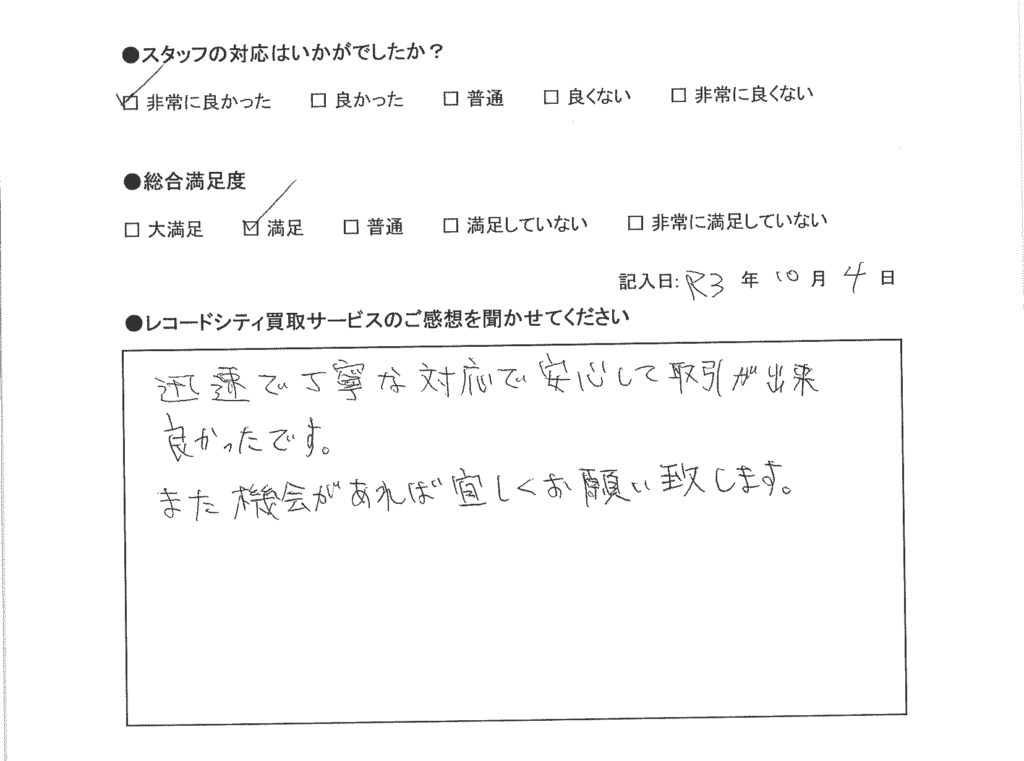 ●スタッフの対応はいかがでしたか?
☑ 非常に良かった □ 良かった □ 普通 □ 良くない □ 非常に良くない
●総合満足度
□ 大満足 ☑ 満足 □ 普通 □ 満足していない □ 非常に満足していない
記入日: R3 年 10 月 4 日
●レコードシティ買取サービスのご感想を聞かせてください
迅速で丁寧な対応で安心して取引が出来
良かったです。
また機会があれば宜しくお願い致します。